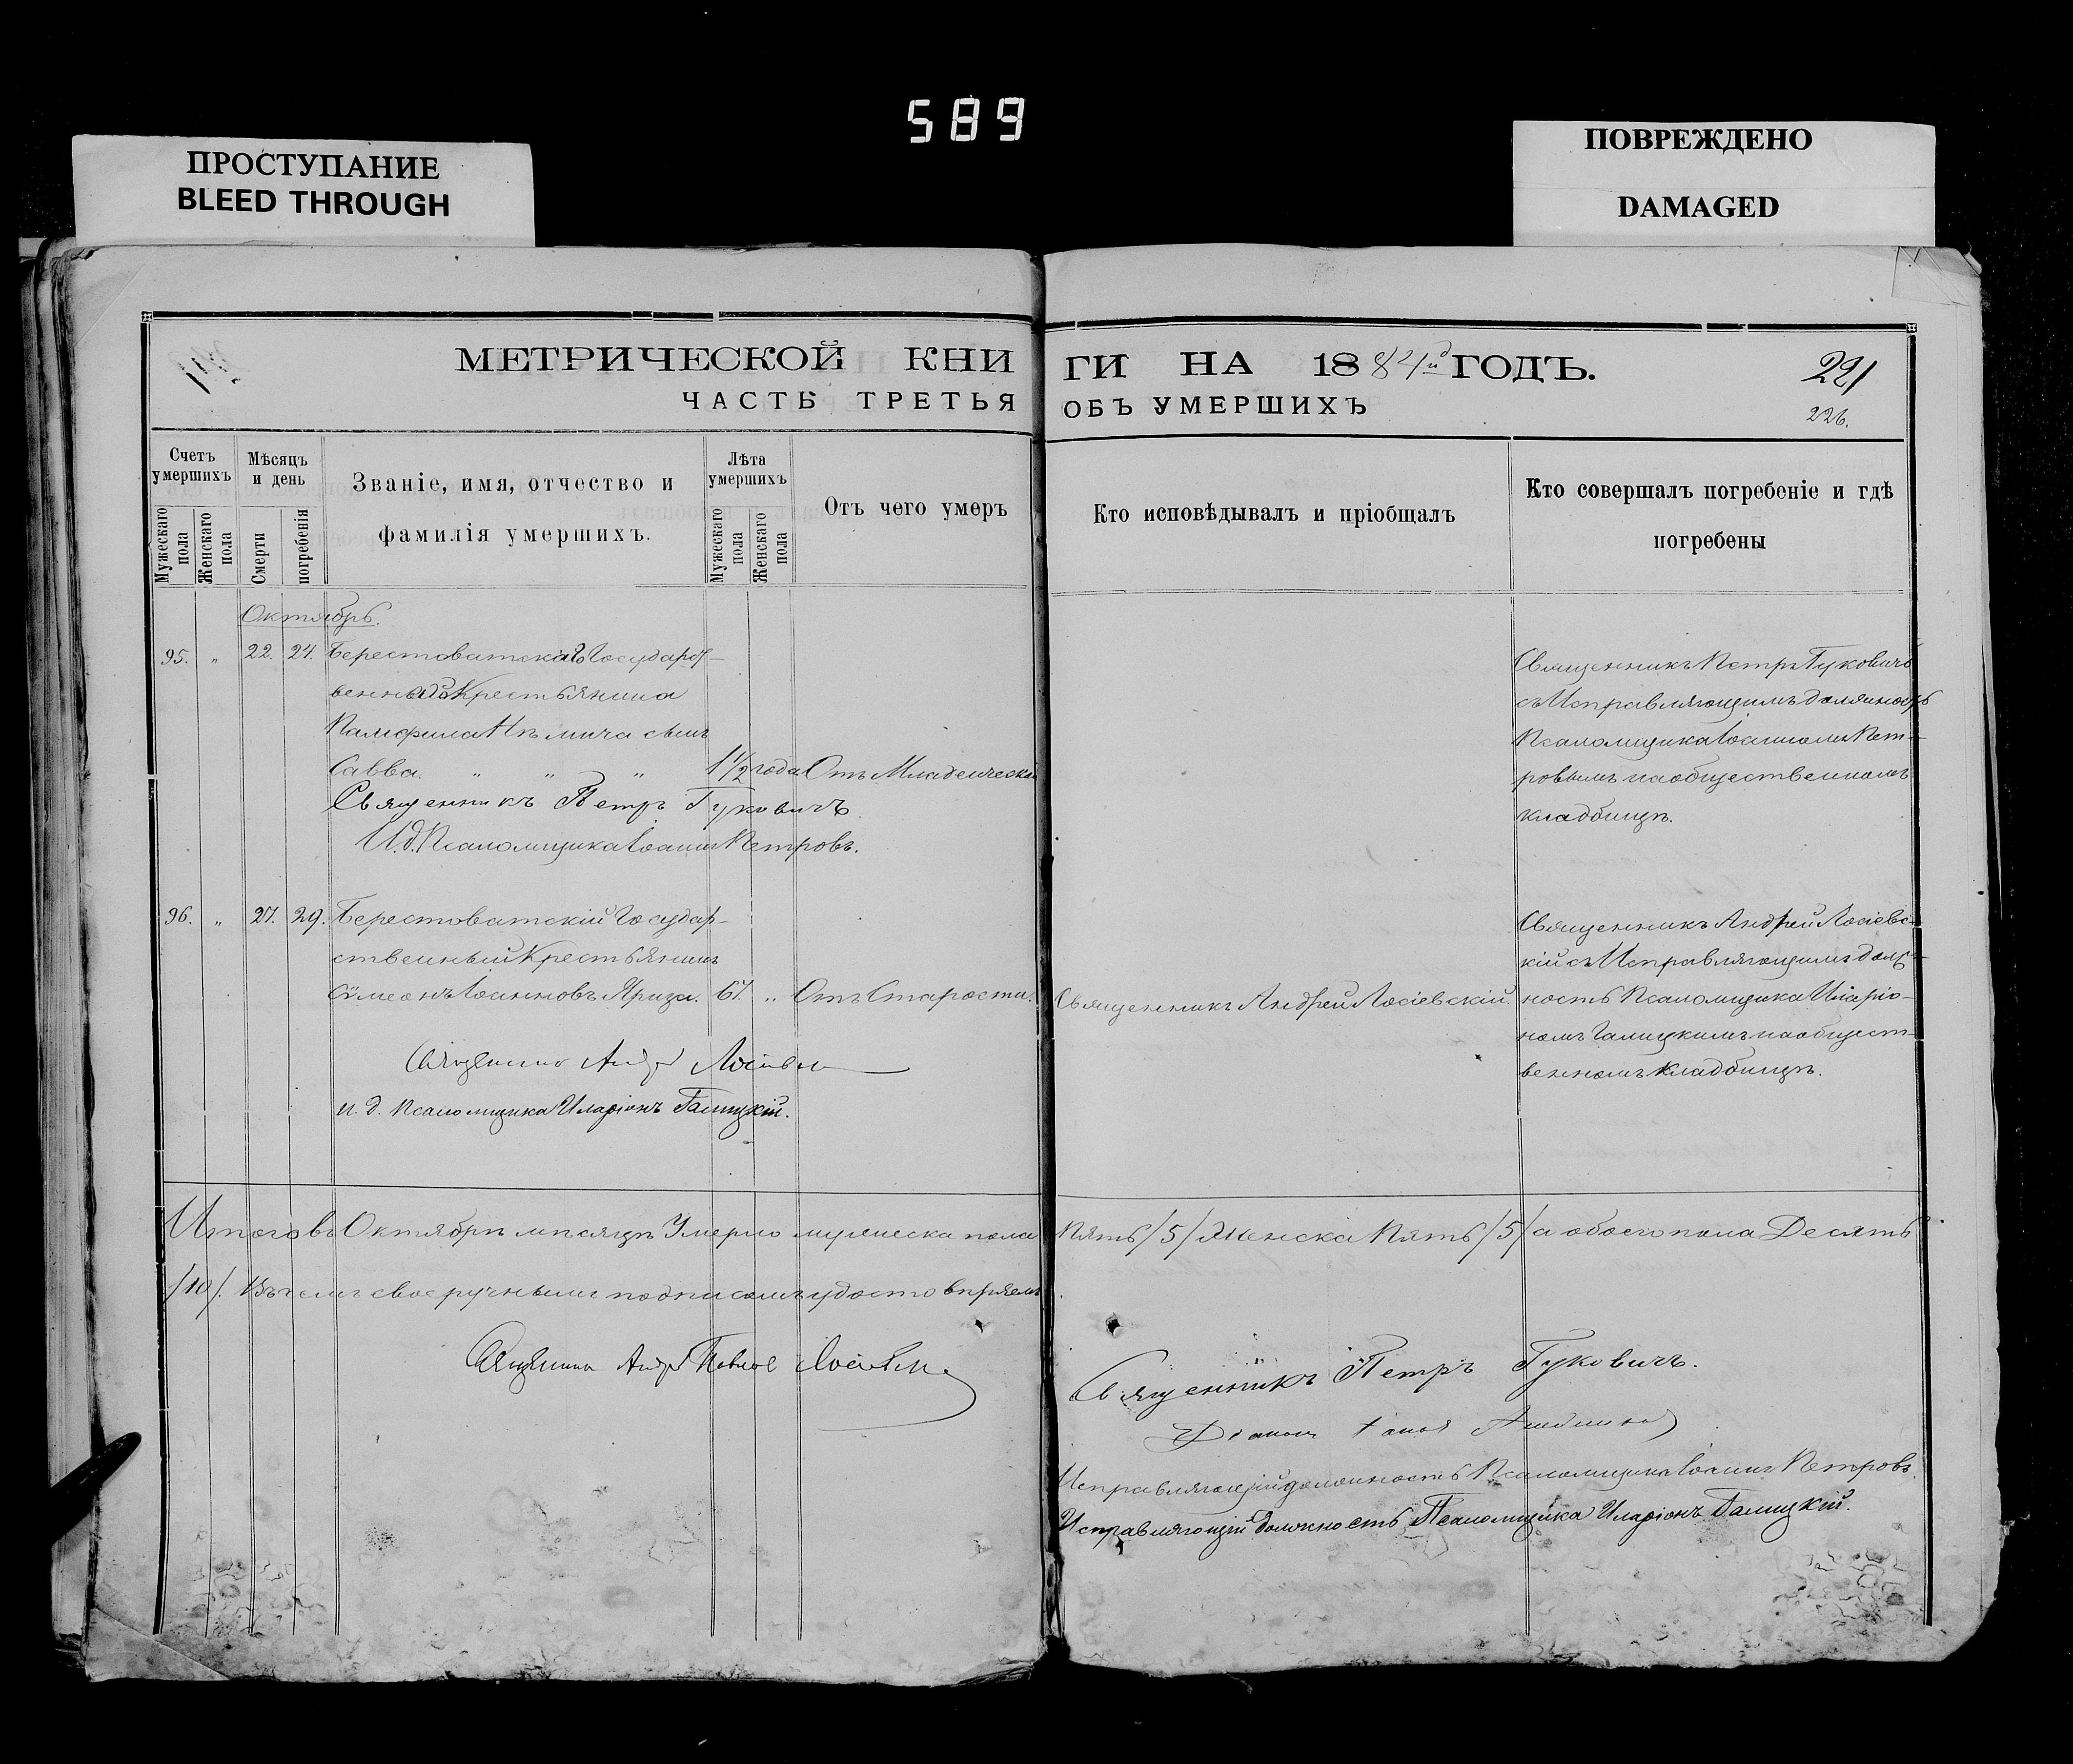 589
ПРОСТУПАНИЕ
BLEED THROUGH
ПОВРЕЖДЕНО
DAMAGED
МЕТРИЧЕСКОЙ КНИ
ЧАСТЬ ТРЕТЬЯ
Счетъ умершихъ
Мужескаго пола
Женскаго пола
Мѣсяцъ и день
Смерти
погребенія
Званіе, имя, отчество и
фамилія умершихъ.
Лѣта умершихъ
Мужескаго пола
Женскаго пола
Отъ чего умеръ
Октябрь.
95. „ 22. 24. Берестоватскаго Государст-
веннаго Крестьянина
Памфила сынъ
Савва. „ „ „ 1 1/2 года Отъ Младенческой
Священникъ Петръ Гуковичъ.
И.д. Псаломщика Іоаннъ Петровъ.
96. „ 27. 29. Берестоватскій Государ-
ственный Крестьянинъ
Сѵмеонъ Іоанновъ Яриза. 67. „ Отъ Старости.
Священникъ Андрей
и.д. Псаломщика Иларіонъ Галицкій.
Итого въ Октябрѣ мѣсяцѣ Умерло мужеска пола
/10/. Въ чемъ своеручнымъ подписомъ удостовѣряемъ
Священникъ Андрей Павловъ
ГИ НА 1884й ГОДЪ.
221
ОБЪ УМЕРШИХЪ
226.
Кто исповѣдывалъ и пріобщалъ
Кто совершалъ погребеніе и гдѣ
погребены
Священникъ Петръ Гуковичъ
съ Исправляющимъ должность
Псаломщика Іоанномъ Пет-
ровымъ на общественномъ
кладбищѣ.
Священникъ Андрей Лосіевскій.
Священникъ Андрей Лосіевс-
кій съ Исправляющимъ долж-
ность Псаломщика Иларіо-
номъ Галицкимъ на общест-
венномъ кладбищѣ.
Пять /5/ Женска Пять /5/ а обоего пола Десять
Священникъ Петръ Гуковичъ.
Исправляющій должность Псаломщика Іоаннъ Петровъ.
Исправляющій должность Псаломщика Иларіонъ Галицкій.